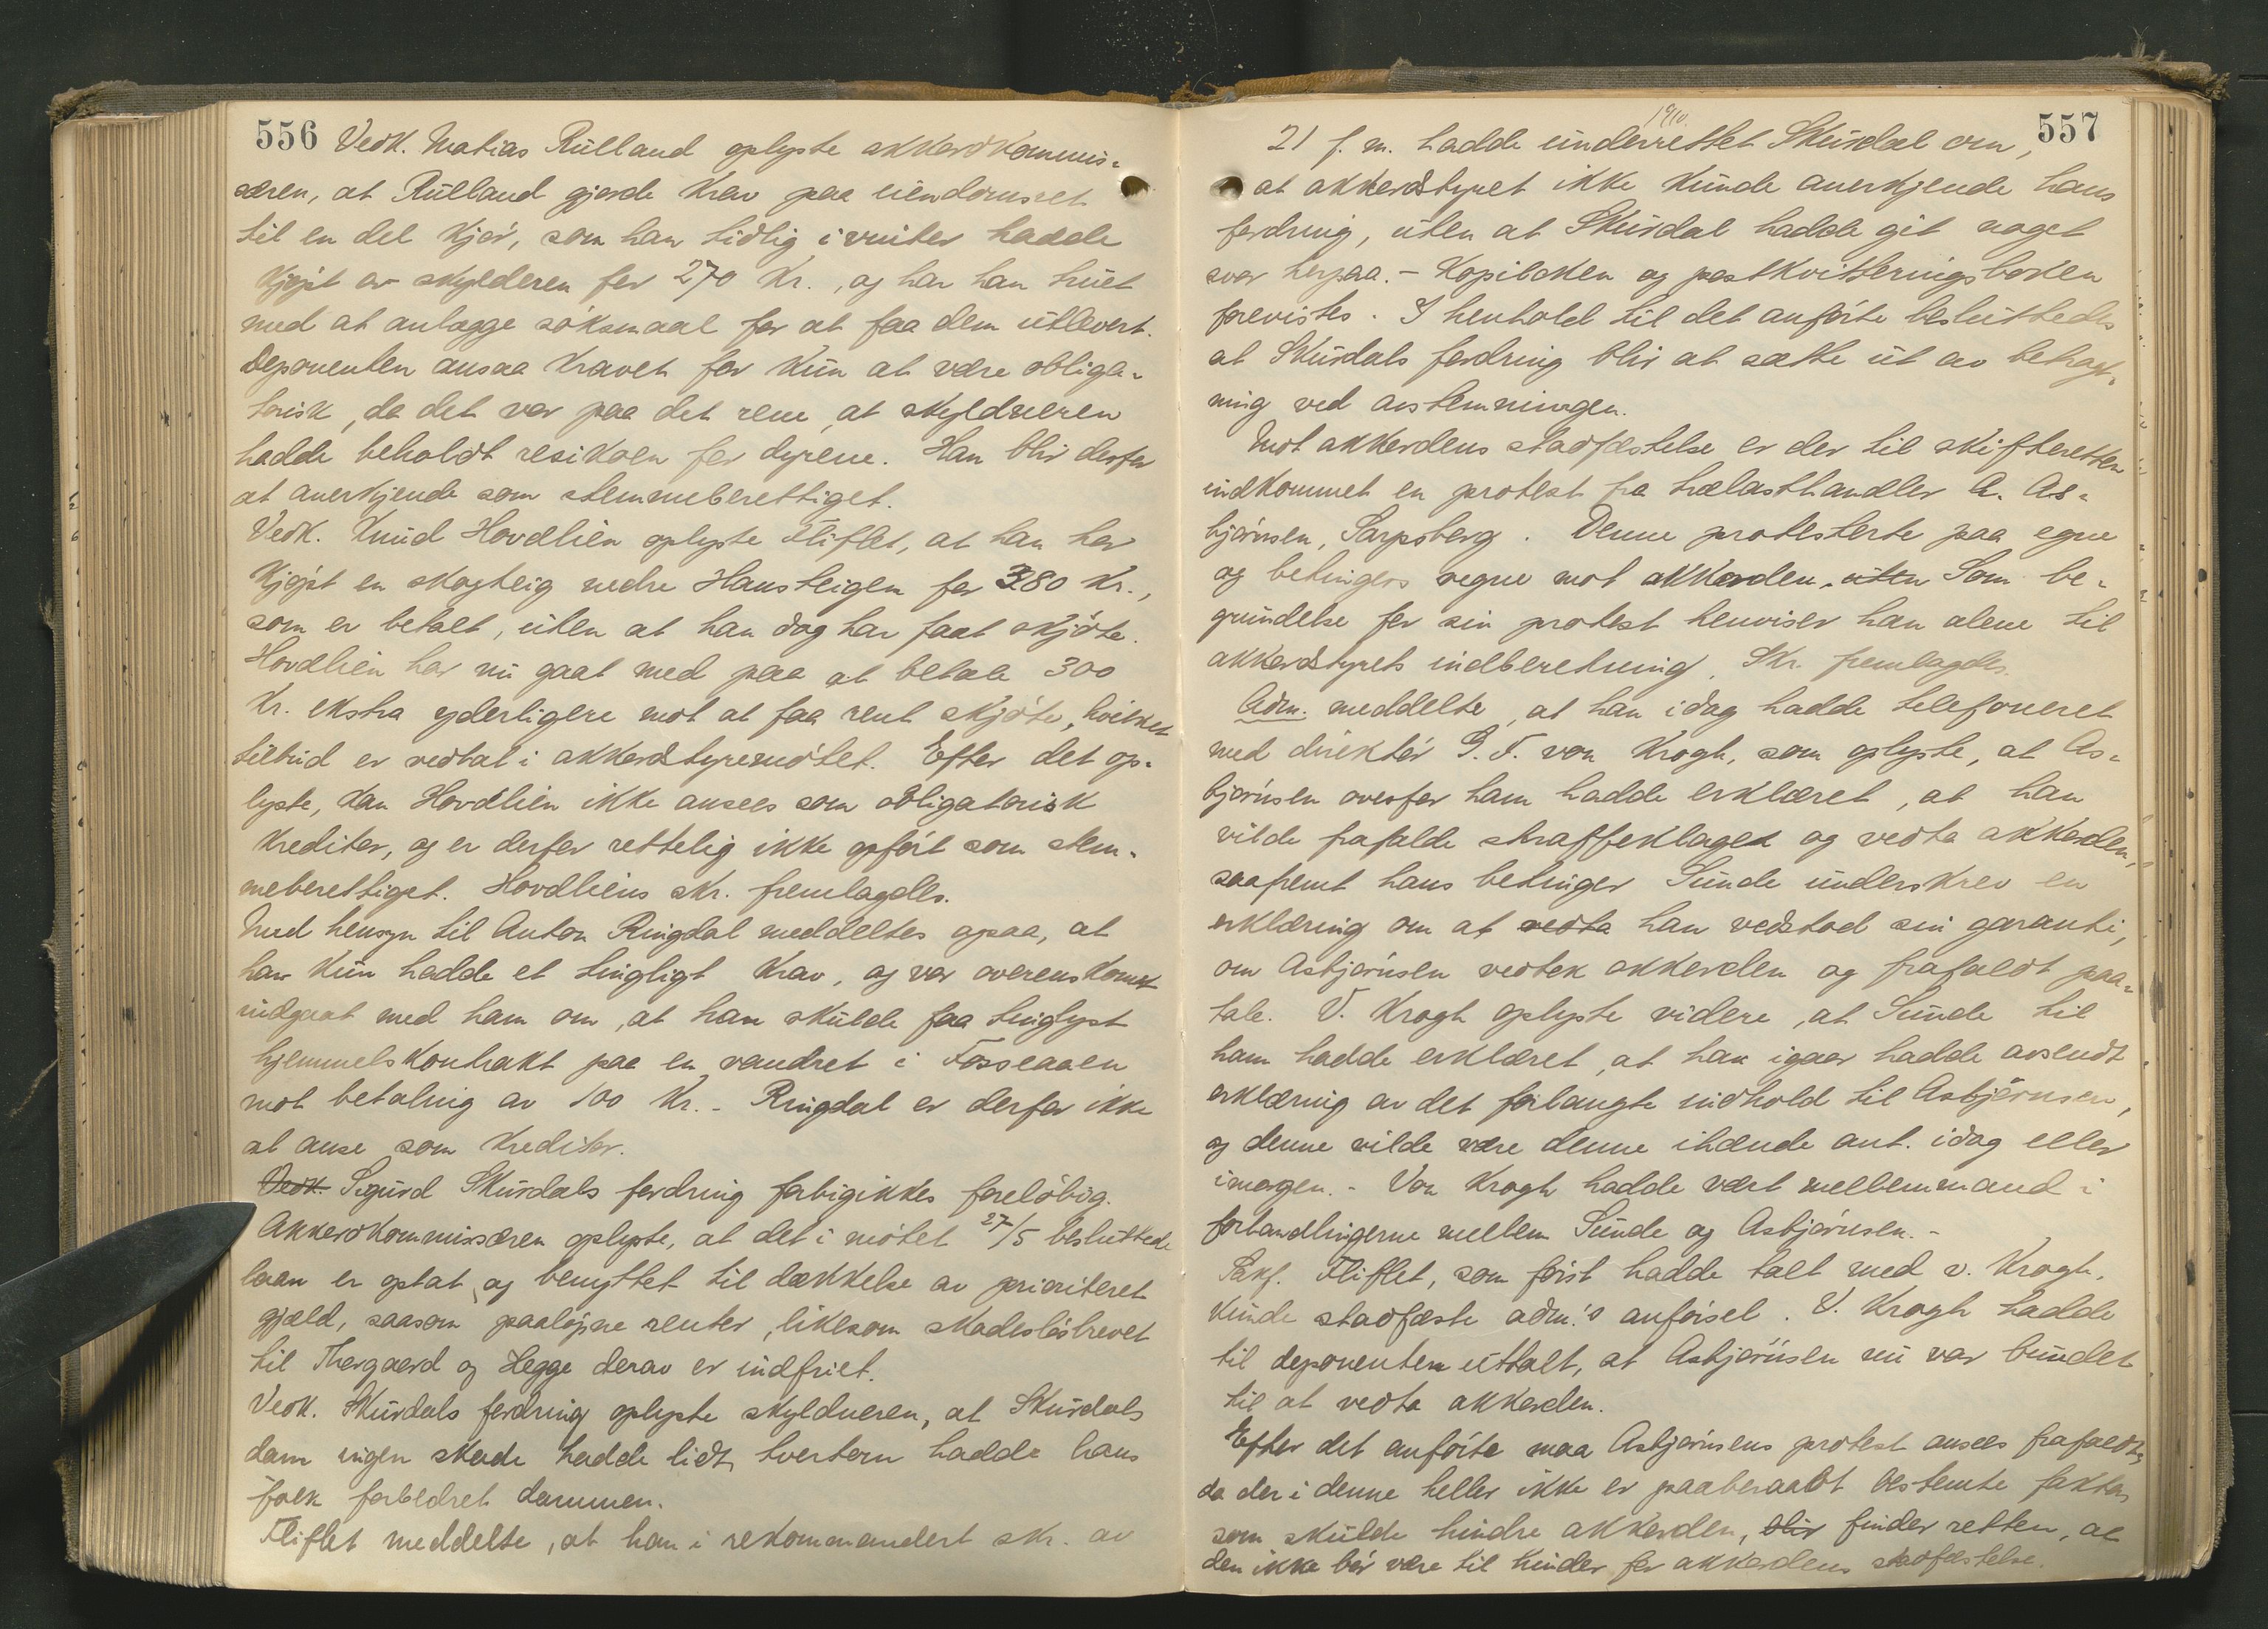 556
Vedk. Matias Rulland oplyste akkordkommis-
særen, at Rulland gjorde krav paa eiendomsret
til en del kjør, som han tidlig i vinter hadde
kjøpt av skylderen for 270 kr., og har han truet
med at anlægge søksmaal for at faa dem utlevert.
Deponenten ansaa kravet for kun at være obliga-
torisk, da det var paa det rene, at skyldneren
hadde beholdt resikoen for dyrene. Han blir derfor
at anerkjende som stemmeberettiget.
Vedk. Knud Hovdlien oplyste Fliflet, at han har
kjøpt en skogteig nedre Hansteigen for 380 kr.,
som er betalt, uten at han dog har faat skjøte.
Hovdlien har nu gaat med paa at betale 300
kr. ekstra yderligere mot at faa rent skjøte, hvilket
tilbud er vedtat i akkordstyremøtet. Efter det op-
lyste, kan Hovdlien ikke ansees som obligatorisk
kreditor, og er derfor rettelig ikke opført som stem-
meberettiget. Hovdliens skr. fremlagdes.
Med hensyn til Anton Ringdal meddeltes ogsaa, at
han kun hadde et tingligt krav, og var overenskomst
indgaat med ham om, at han skulde faa tinglyst
hjemmelskontrakt paa en vandret i Fosseaaen
mot betaling av 100 kr. - Ringdal er derfor ikke
at anse som kreditor.
Vedk. Sigurd Skurdals fordring forbigikkes foreløbig.
Akkordkommissæren oplyste, at det i møtet 27/5 besluttede
laan er optat og benyttet til dækkelse av prioriteret
gjæld, saasom paaløpne renter, likesom skadesløsbrevet
til Thorgaard og Hegge derav er indfriet.
Vedk. Skurdals fordring oplyste skyldneren, at Skurdals
dam ingen skade hadde lidt, tvertom hadde hans
folk forbedret dammen.
Fliflet meddelte, at han i rekommandert skr. av
557
1910.
21 f. m. hadde underrettet Skurdal om,
at akkordstyret ikke kunde anerkjende hans
fordring, uten at Skurdal hadde git noget
svar herpaa. - Kopiboken og postkvitteringsboken
forevistes. I henhold til det anførte besluttedes
at Skurdals fordring blir at sætte ut av betragt-
ning ved avstemningen.
Mot akkordens stadfæstelse er der til skifteretten
indkommet en protest fra trælasthandler A. As-
bjørnsen, Sarpsborg. Denne protesterte paa egne
og betingers vegne mot akkorden. uten Som be-
grundelse for sin protest henviser han alene til
akkordstyrets indberetning. Skr. fremlagdes.
Adm. meddelte, at han idag hadde telefoneret
med direktør G. F. von Krogh, som oplyste, at As-
bjørnsen overfor ham hadde erklæret, at han
vilde frafalde straffeklagen og vedta akkorden,
saafremt hans betinger Sunde underskrev en
erklæring om at vedta han vedstod sin garanti,
om Asbjørnsen vedtok akkorden og frafaldt paa-
tale. V. Krogh oplyste videre, at Sunde til
ham hadde erklæret, at han igaar hadde avsendt
erklæring av det forlangte indhold til Asbjørnsen,
og denne vilde være denne ihænde ant. idag eller
imorgen. - Von Krogh hadde vært mellemmand i
forhandlingerne mellem Sunde og Asbjørnsen. -
Sakf. Fliflet, som først hadde talt med v. Krogh,
kunde stadfæste adm.'s anførsel. V. Krogh hadde
til deponenten uttalt, at Asbjørnsen nu var bundet
til at vedta akkorden.
Efter det anførte maa Asbjørnsens protest ansees frafaldt,
da der i denne heller ikke er paaberaabt bestemte fakta,
som skulde hindre akkorden, blir finder retten, at
den ikke bør være til hinder for akkordens stadfæstelse.